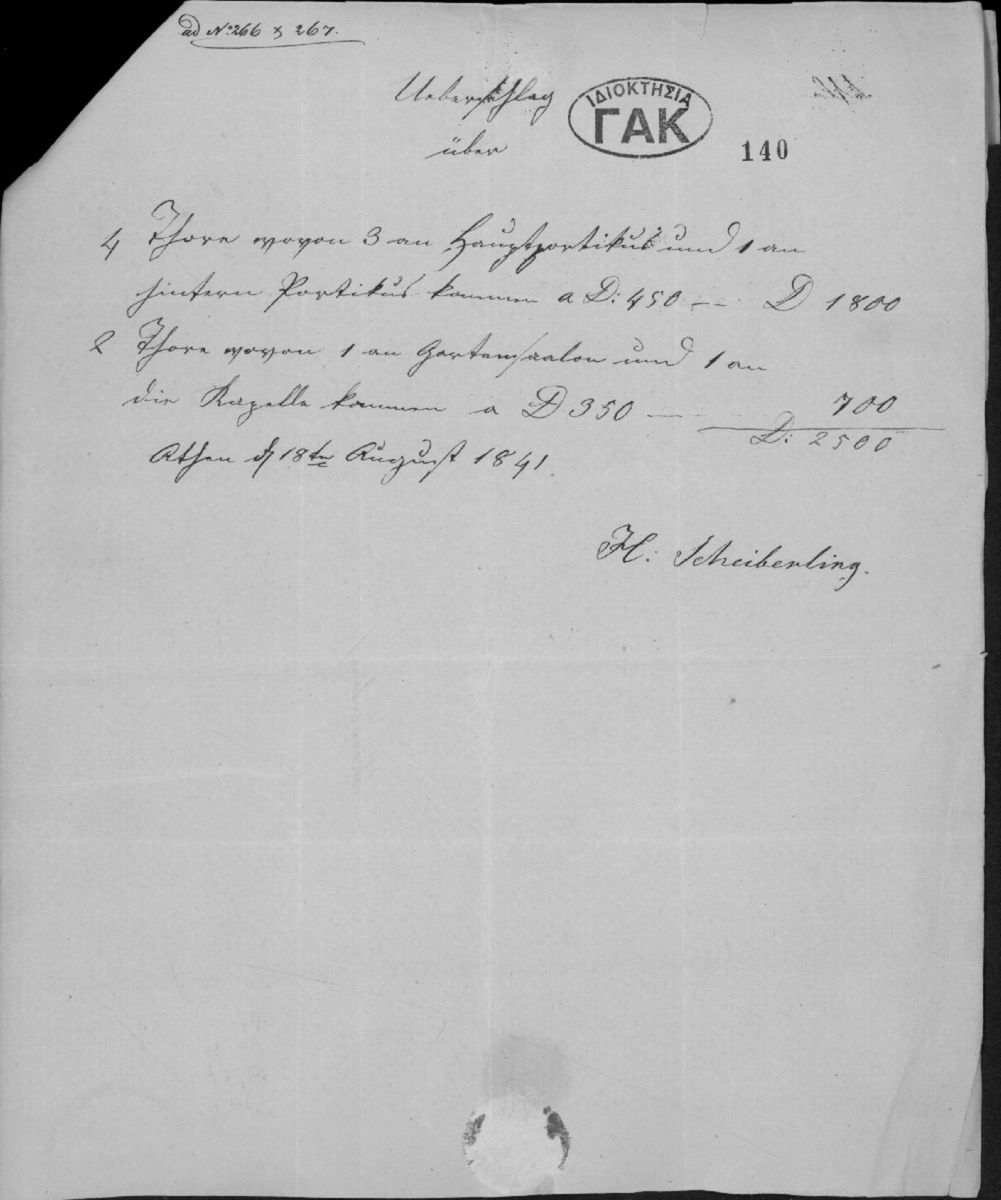 ad No: 266 & 267.
Ueberschlag
ΙΔΙΟΚΤΗΣΙΑ
ΓΑΚ
über
140
4 Thore wovon 3 an Hauptportikus und 1 an
hintern Portikus kommen a D: 450 — D 1800
2 Thore wovon 1 an Gartensaalon und 1 an
die Kapelle kommen a D 350 — 700
D: 2500
Athen d 18ten August 1841.
H: Scheiberling.